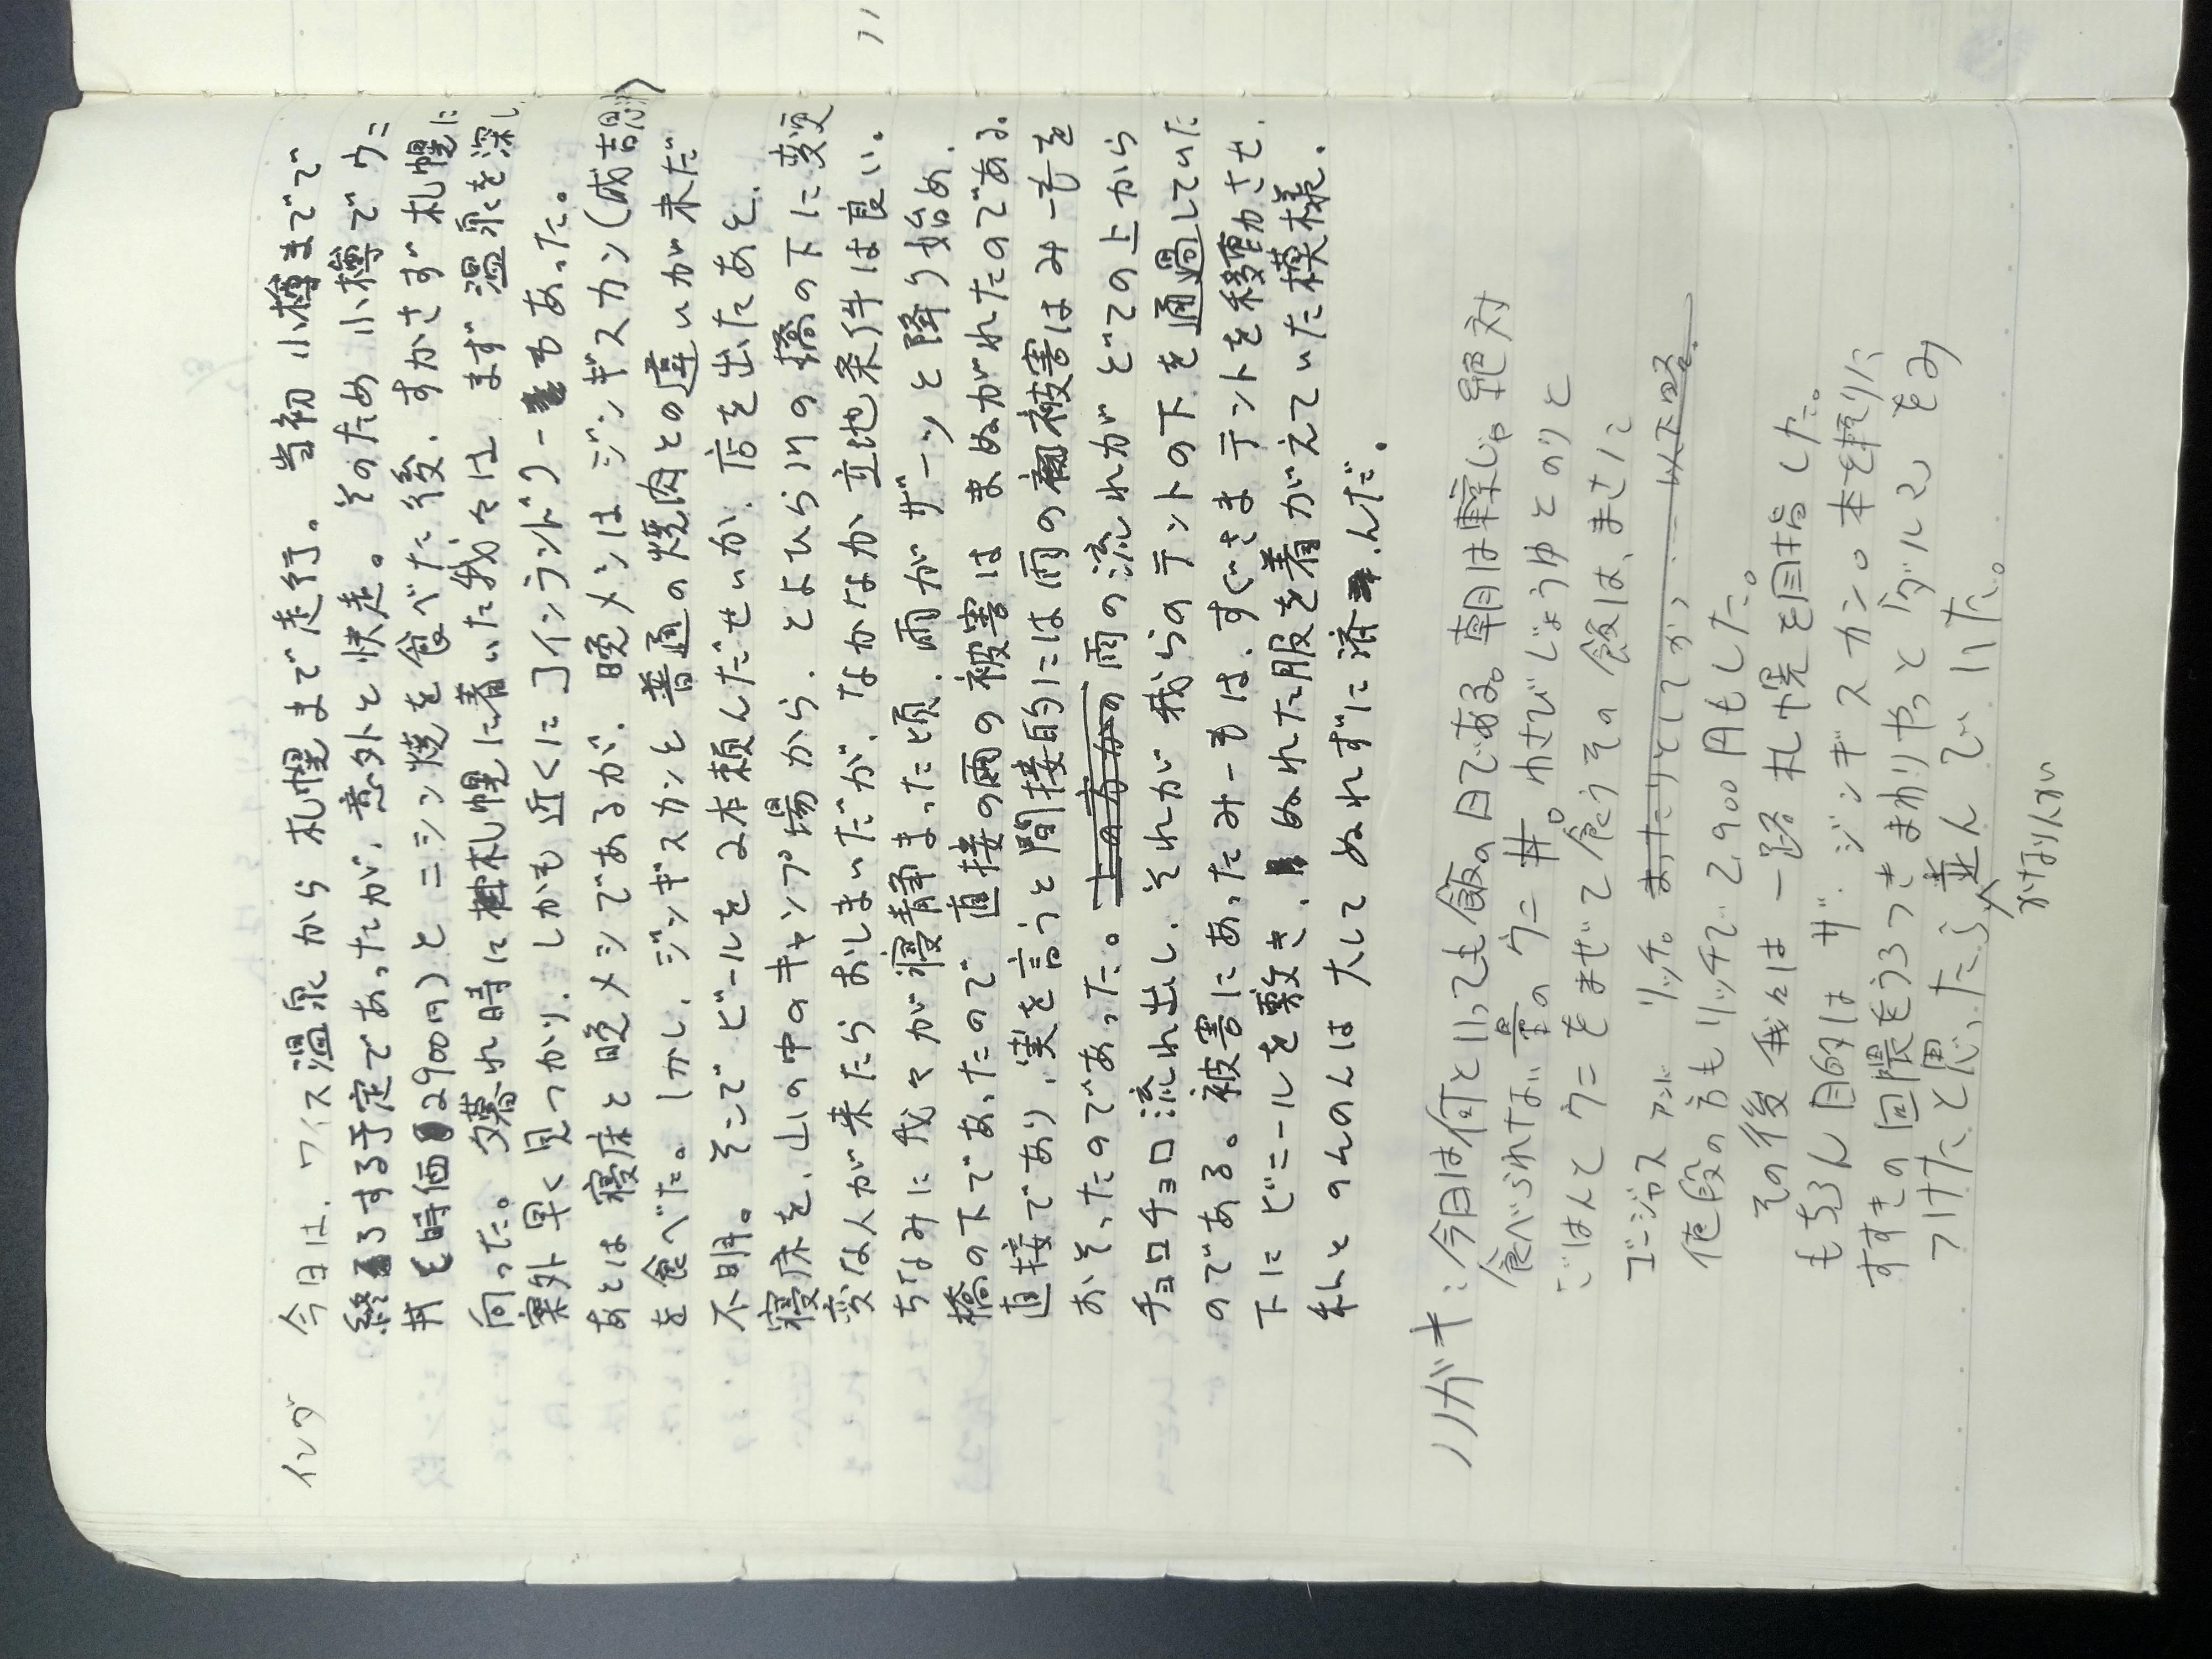 イレブ 今日は、ワイス温泉から札幌まで走行。当初小樽までで
終了する予定であったが、意外と快走。そのため小樽でウニ
丼(時価2900円)とニシン焼を食べた後、すかさず札幌に
向った。夕暮れ時に札幌に着いた我々は まず温泉を探し
案外早く見つかり、しかも近くにコインランドリーもあった。
あとは寝床と晩メシであるが、晩メシはジンギスカン(成吉思汗)
を食べた。しかし、ジンギスカンと普通の焼肉との違いが未だ
不明。そこでビールを2本頼んだせいか、店を出たあと、
寝床を、山の中のキャンプ場から、とよひら川の橋の下に変更
変な人が来たらおしまいだが、なかなか立地条件は良い。
ちなみに我々が寝静まった頃、雨がザーッと降り始め、
橋の下であったので直接の雨の被害はまぬがれたのである。
直接であり、実を言うと間接的には雨の被害はみーもを
おそったのであった。上の方から雨の流れがどての上から
チョロチョロ流れ出し、それが我らのテントの下を通過していた
のである。被害にあったみーもは、すぐさまテントを移動させ、
下にビニールを敷き、ぬれた服を着がえていた模様。
私とのんのんは大してぬれずに済んだ。
ハガキ:今日は何といっても飯の日である。朝は軽じゃ絶対
食べられない量のウニ丼。わさびじょうゆとのりと
ごはんとウニをまぜて食うその飯は、まさに
ゴージャス アンド リッチ。まったりとしてかつ…以下略。
値段の方もリッチで2,900円もした。
その後我々は一路札幌を目指した。
もちろん目的はザ・ジンギスカン。本を頼りに
すすきの界隈をうろつきまわりやっとダルマをみ
つけたと思ったら並んでいた。
かなり人が